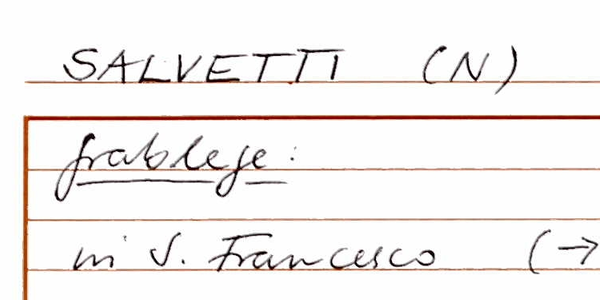 SALVETTI (N)
Grablege:
in S. Francesco (→